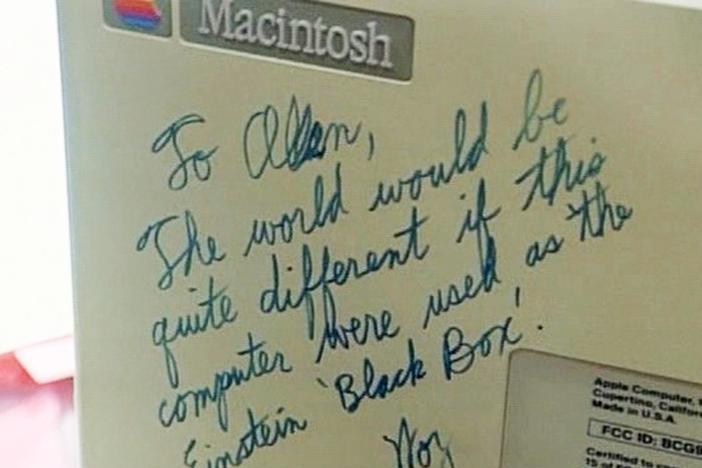 Macintosh
To Allan,
The world would be
quite different if this
computer were used as the
Einstein 'Black Box'.
Woz
Apple Computer,
Cupertino, Califor
Made in U.S.A.
FCC ID: BCG9
Certified to